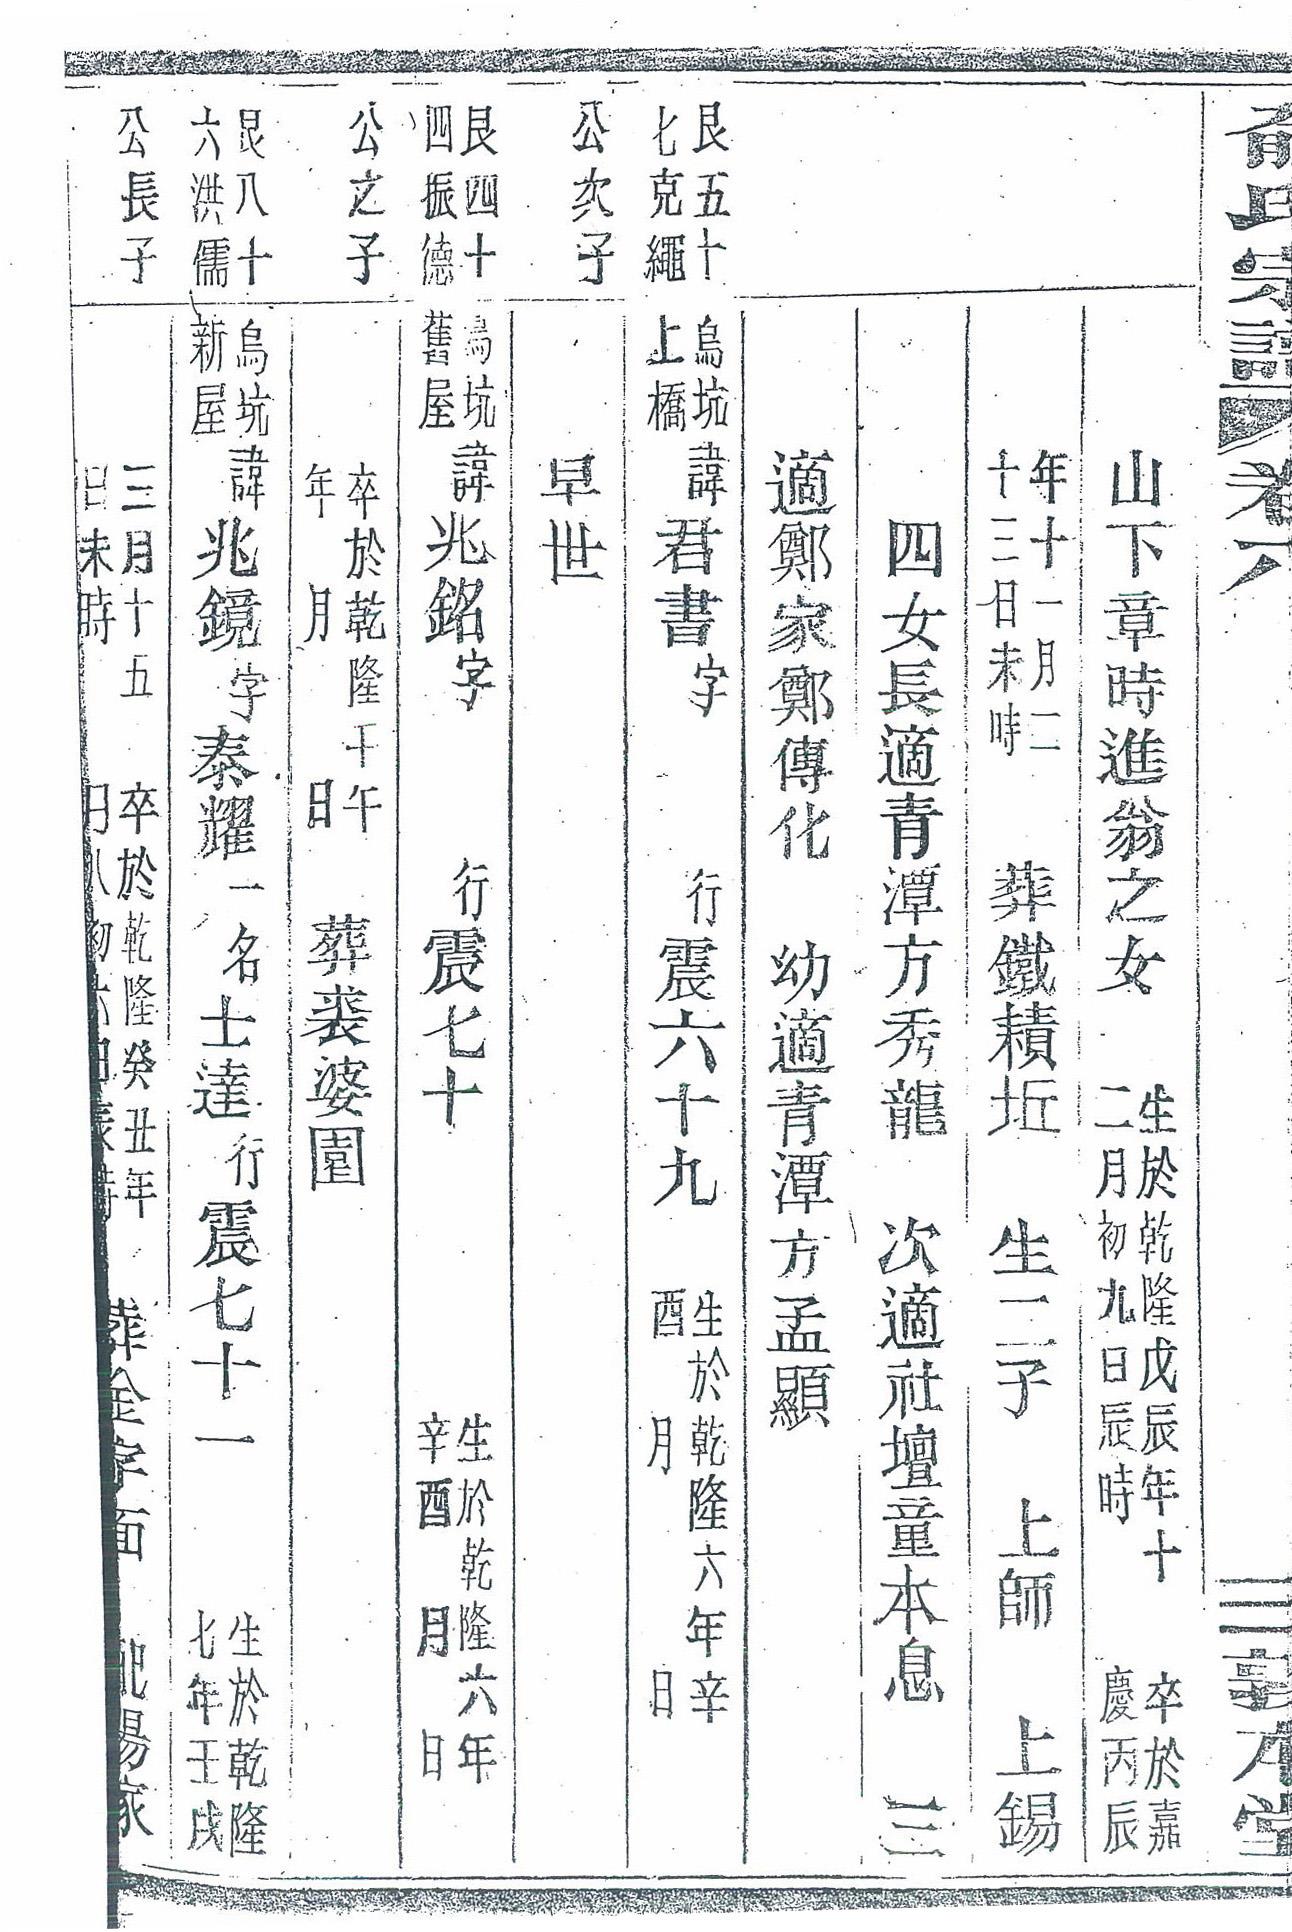 俞氏宗譜 卷八 三 敦本堂
山下章時進翁之女 生於乾隆戊辰年十二月初九日辰時 卒於嘉慶丙辰
年十一月二十三日未時 葬鐵耫坵 生二子 上師 上錫
四女長適青潭方秀龍 次適社壇童本息 三
適鄭家鄭傳化 幼適青潭方孟顯
艮五十七克繩 烏坑上橋 諱君書字 行震六十九 生於乾隆六年辛酉 月 日
公次子 早世
艮四十四振德 烏坑舊屋 諱兆銘字 行震七十 生於乾隆六年辛酉 月 日
公之子 卒於乾隆 午年 月 日 葬裘婆園
艮八十六洪儒 烏坑新屋 諱兆鏡字泰耀一名士達行震七十一 生於乾隆七年壬戌
公長子 三月十五日未時 卒於乾隆癸丑年 月 初六日 時 葬金字面 配楊家